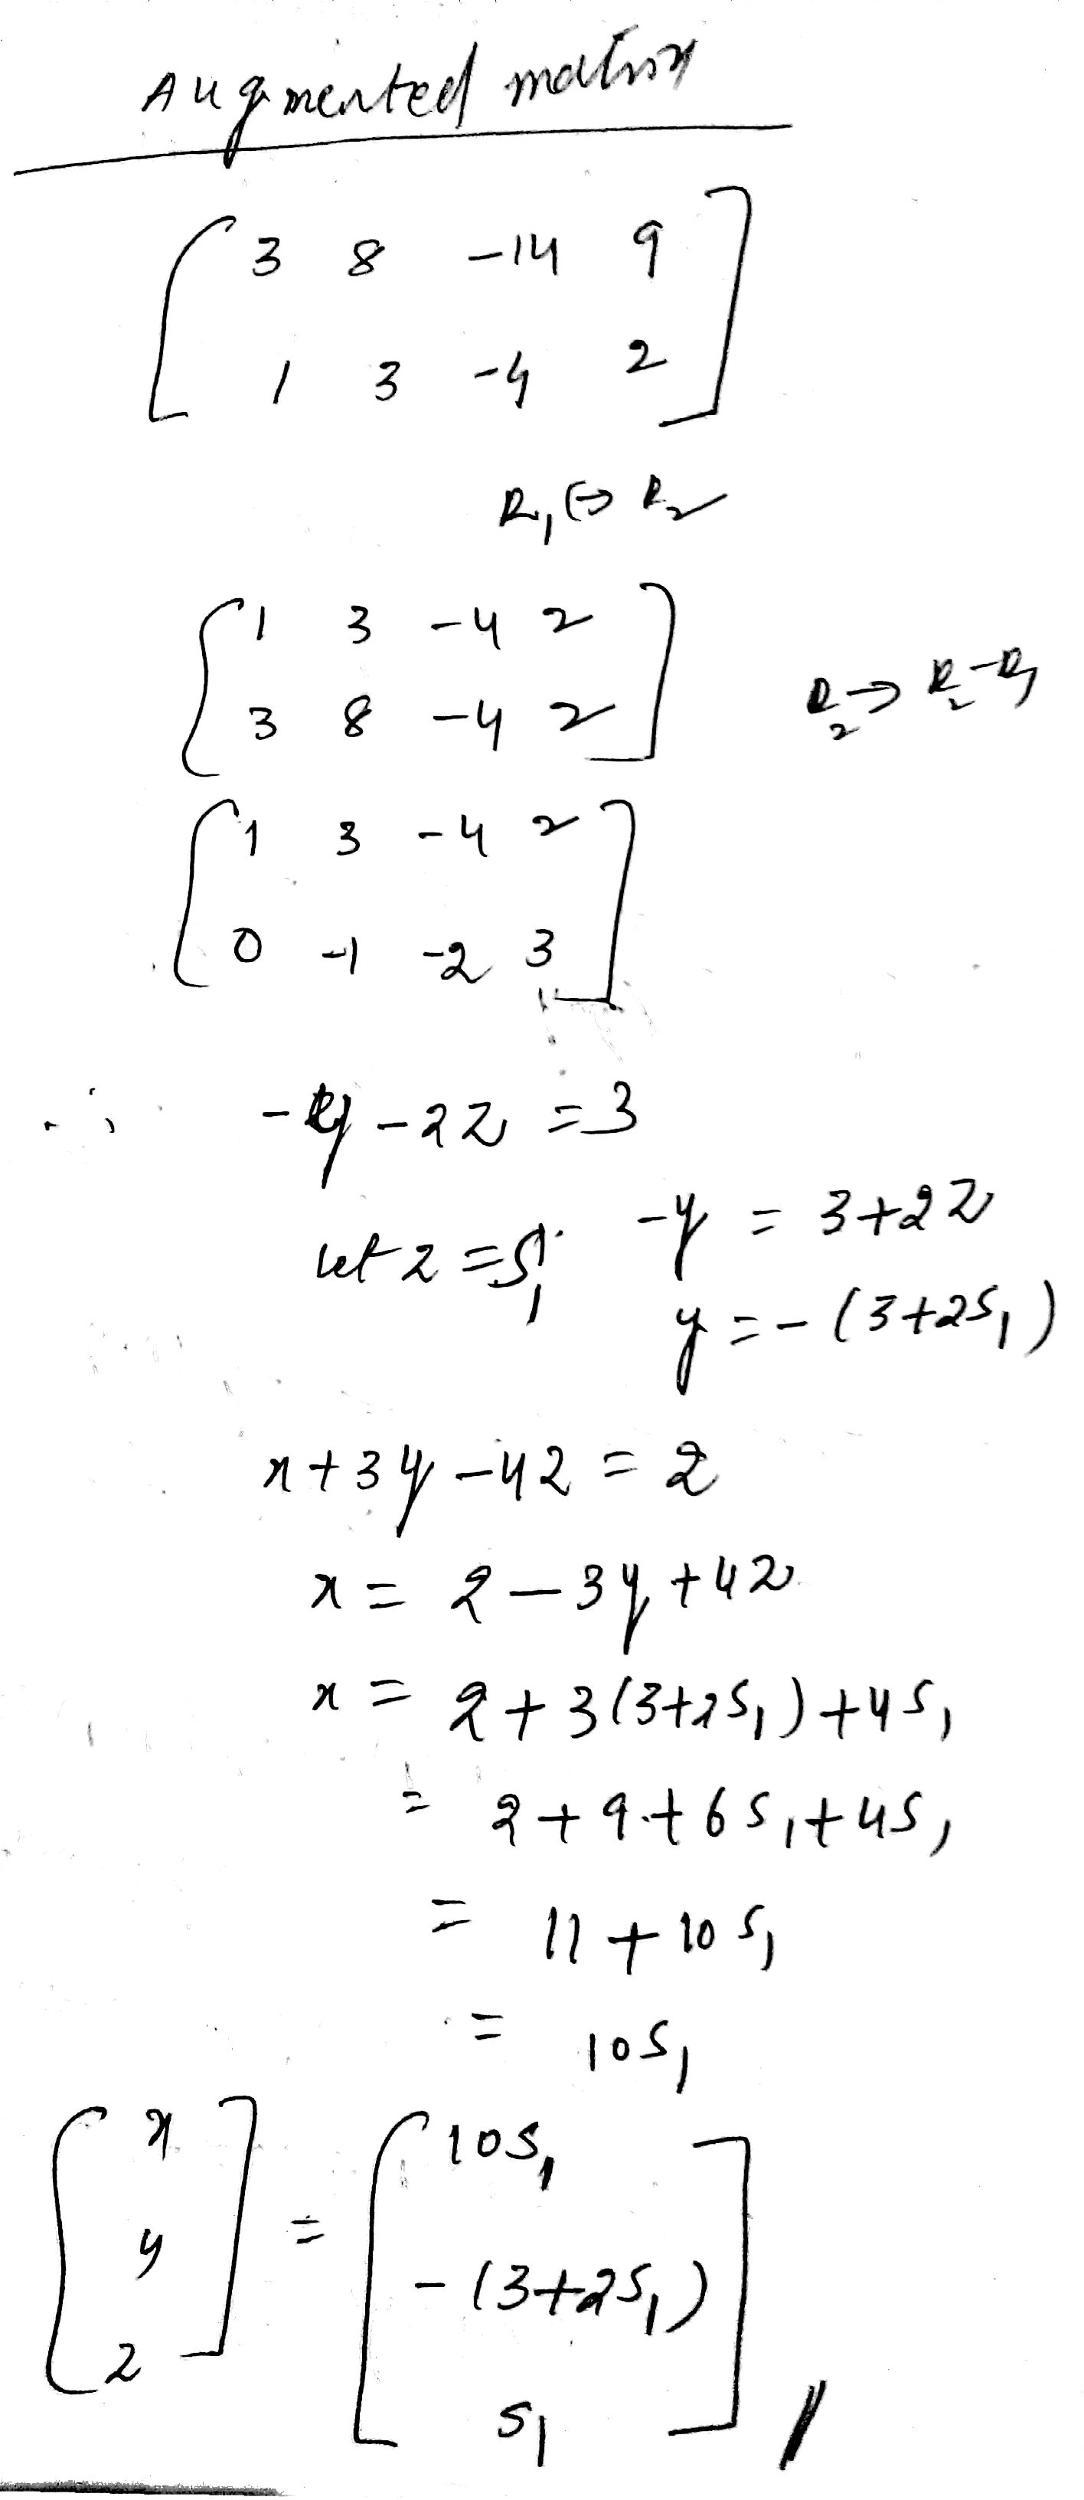 Augmented matrix
[ 3 8 -14 9
1 3 -4 2 ]
R₁ ↔ R₂
[ 1 3 -4 2
3 8 -4 2 ] R₂ → R₂-R₁
[ 1 3 -4 2
0 -1 -2 3 ]
∴ -y - 2z = 3
-y = 3+2z
let z = S₁
y = -(3+2S₁)
x+3y-4z = 2
x = 2-3y+4z
x = 2+3(3+2S₁)+4S₁
= 2+9+6S₁+4S₁
= 11+10S₁
= 10S₁
[ x y z ] = [ 10S₁
-(3+2S₁)
S₁ ]